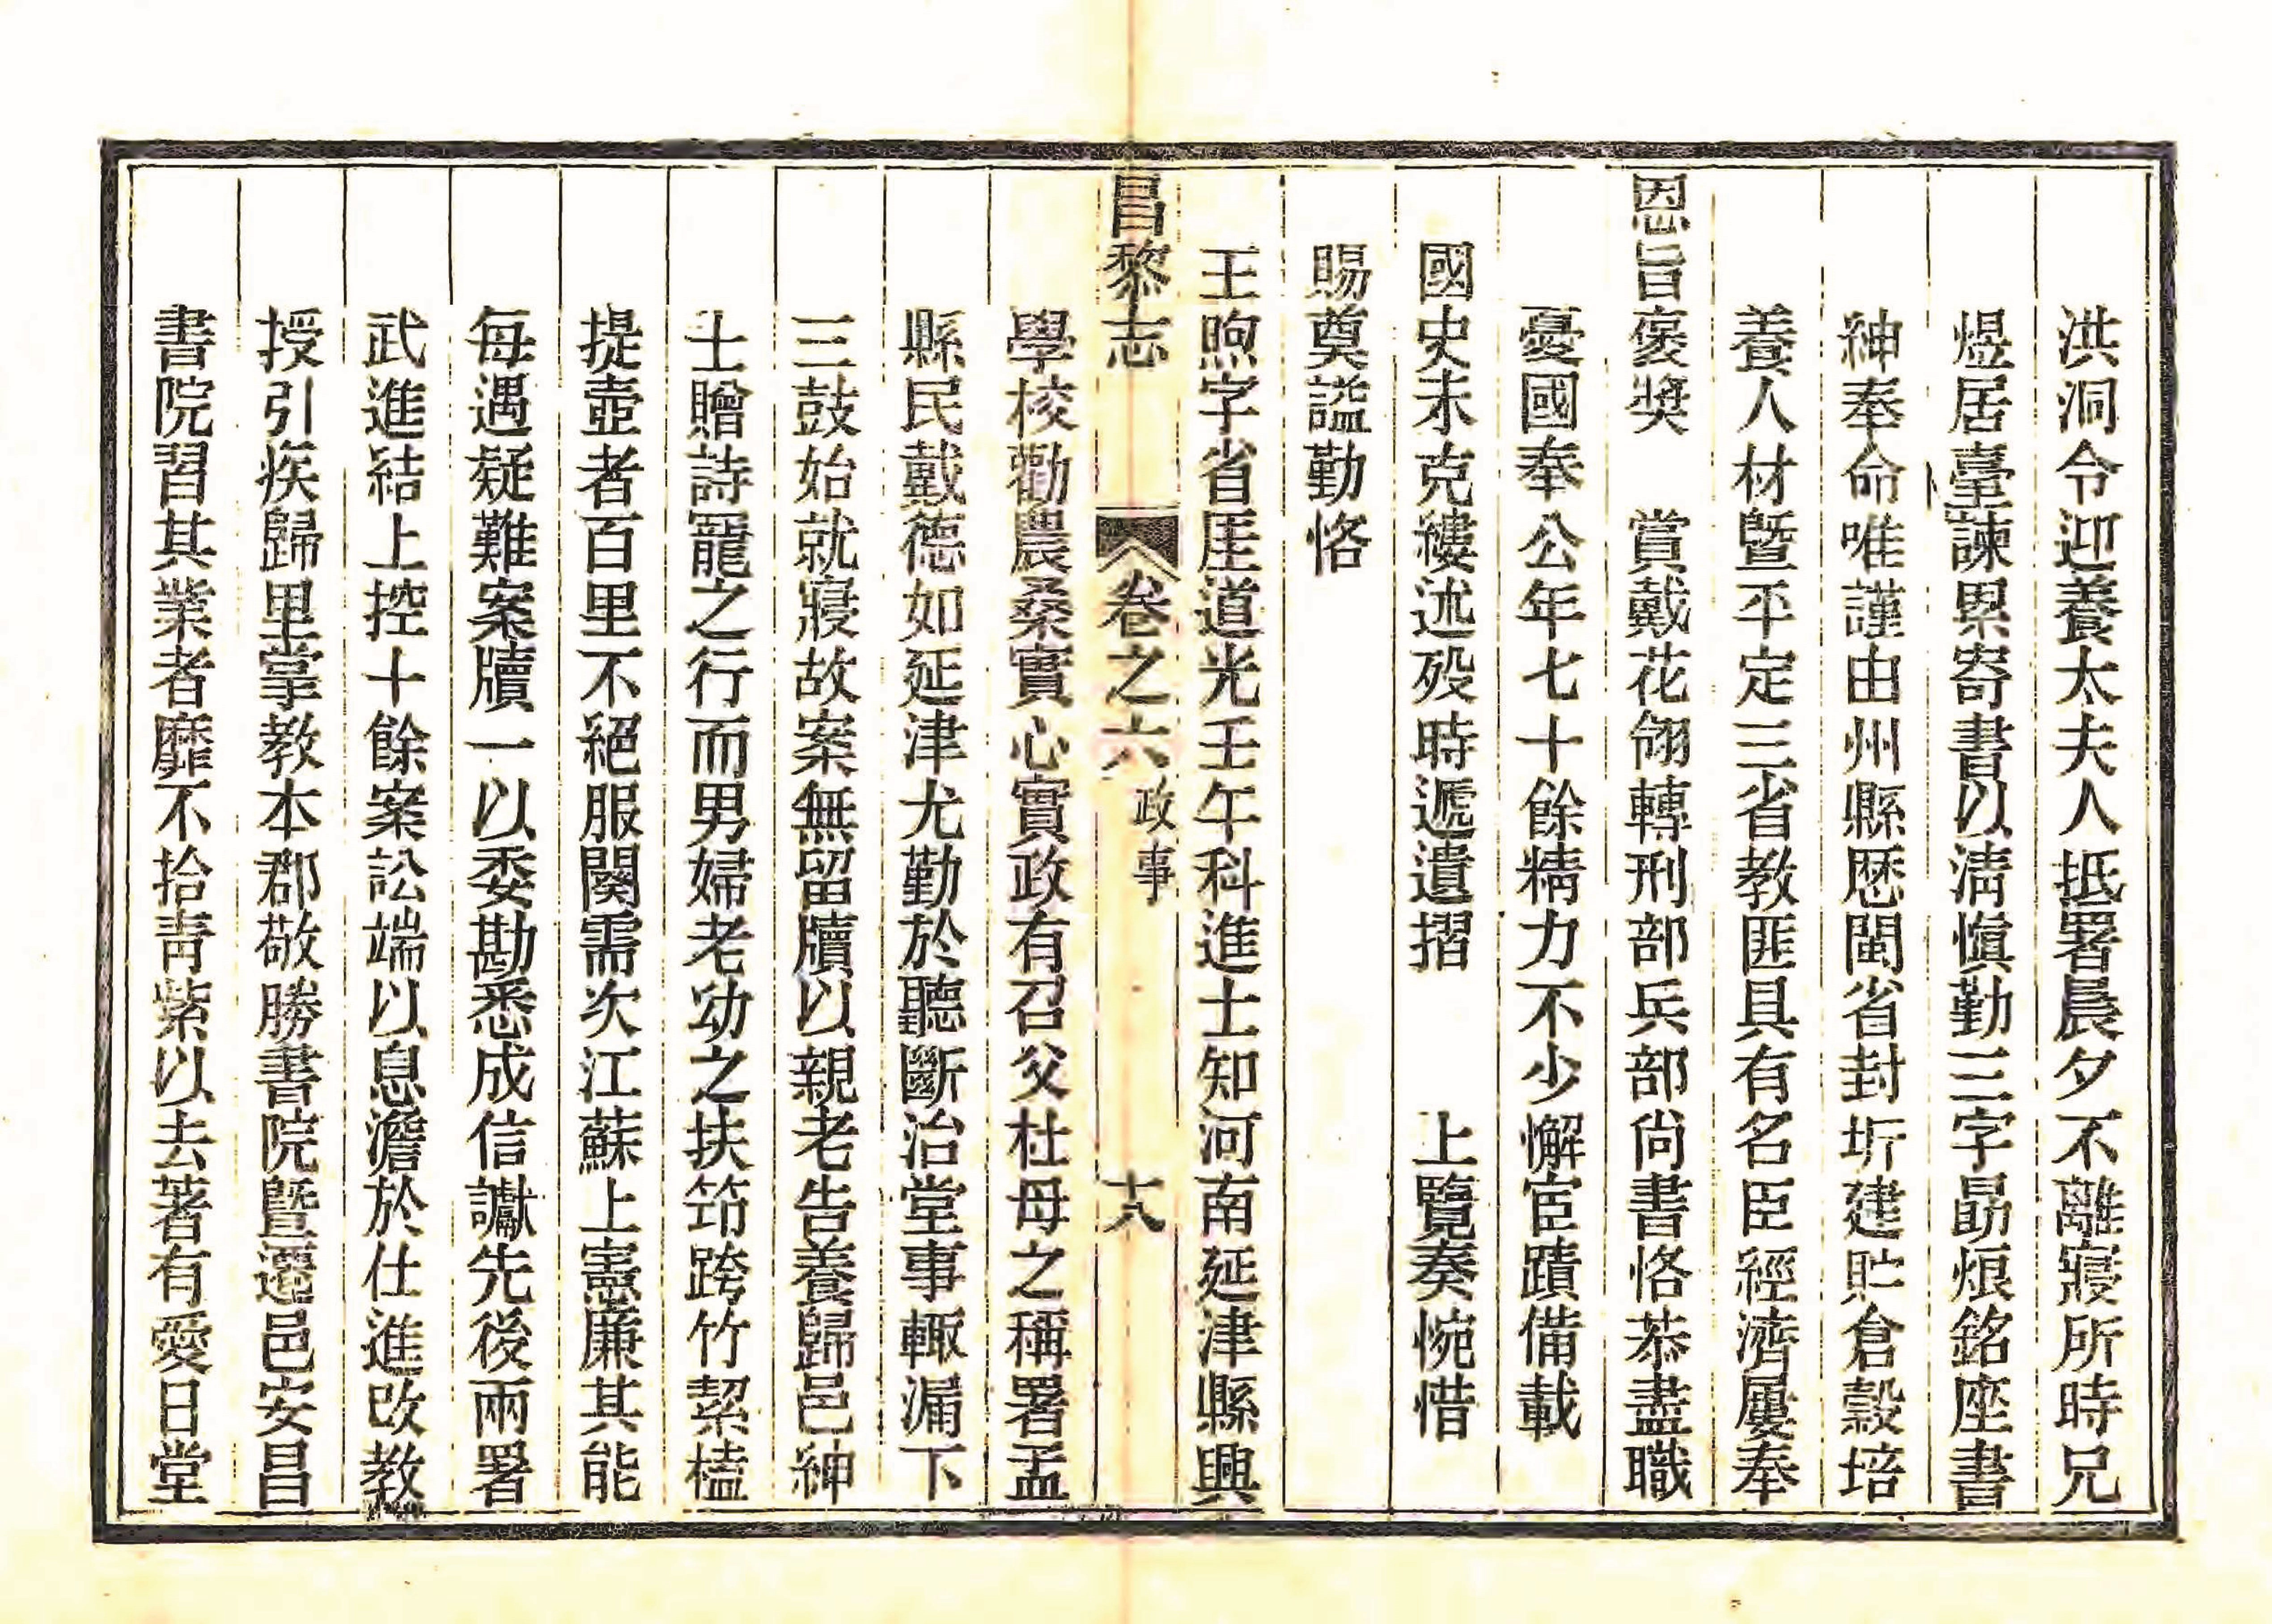 洪洞令迎養太夫人抵署晨夕不離寢所時兄
煜居臺諫累寄書以淸慎勤三字勗烺銘座書
紳奉命唯謹由州縣歷閩省封圻建貯倉穀培
養人材曁平定三省教匪具有名臣經濟屢奉
恩旨襃奬 賞戴花翎轉刑部兵部尙書恪恭盡職
憂國奉公年七十餘精力不少懈宦蹟備載
國史未克縷述歿時遞遺摺 上覽奏惋惜
賜奠謚勤恪
王煦字省厓道光壬午科進士知河南延津縣興
昌黎志 卷之六 政事 十八
學校勸農桑實心實政有召父杜母之稱署孟
縣民戴德如延津尤勤於聽斷治堂事輙漏下
三鼓始就寢故案無留牘以親老告養歸邑紳
士贈詩寵之行而男婦老幼之扶笻跨竹挈榼
提壺者百里不絕服闋需次江蘇上憲廉其能
每遇疑難案牘一以委勘悉成信讞先後兩署
武進結上控十餘案訟端以息澹於仕進改教
授引疾歸里掌教本郡敬勝書院曁遷邑安昌
書院習其業者靡不拾靑紫以去著有愛日堂